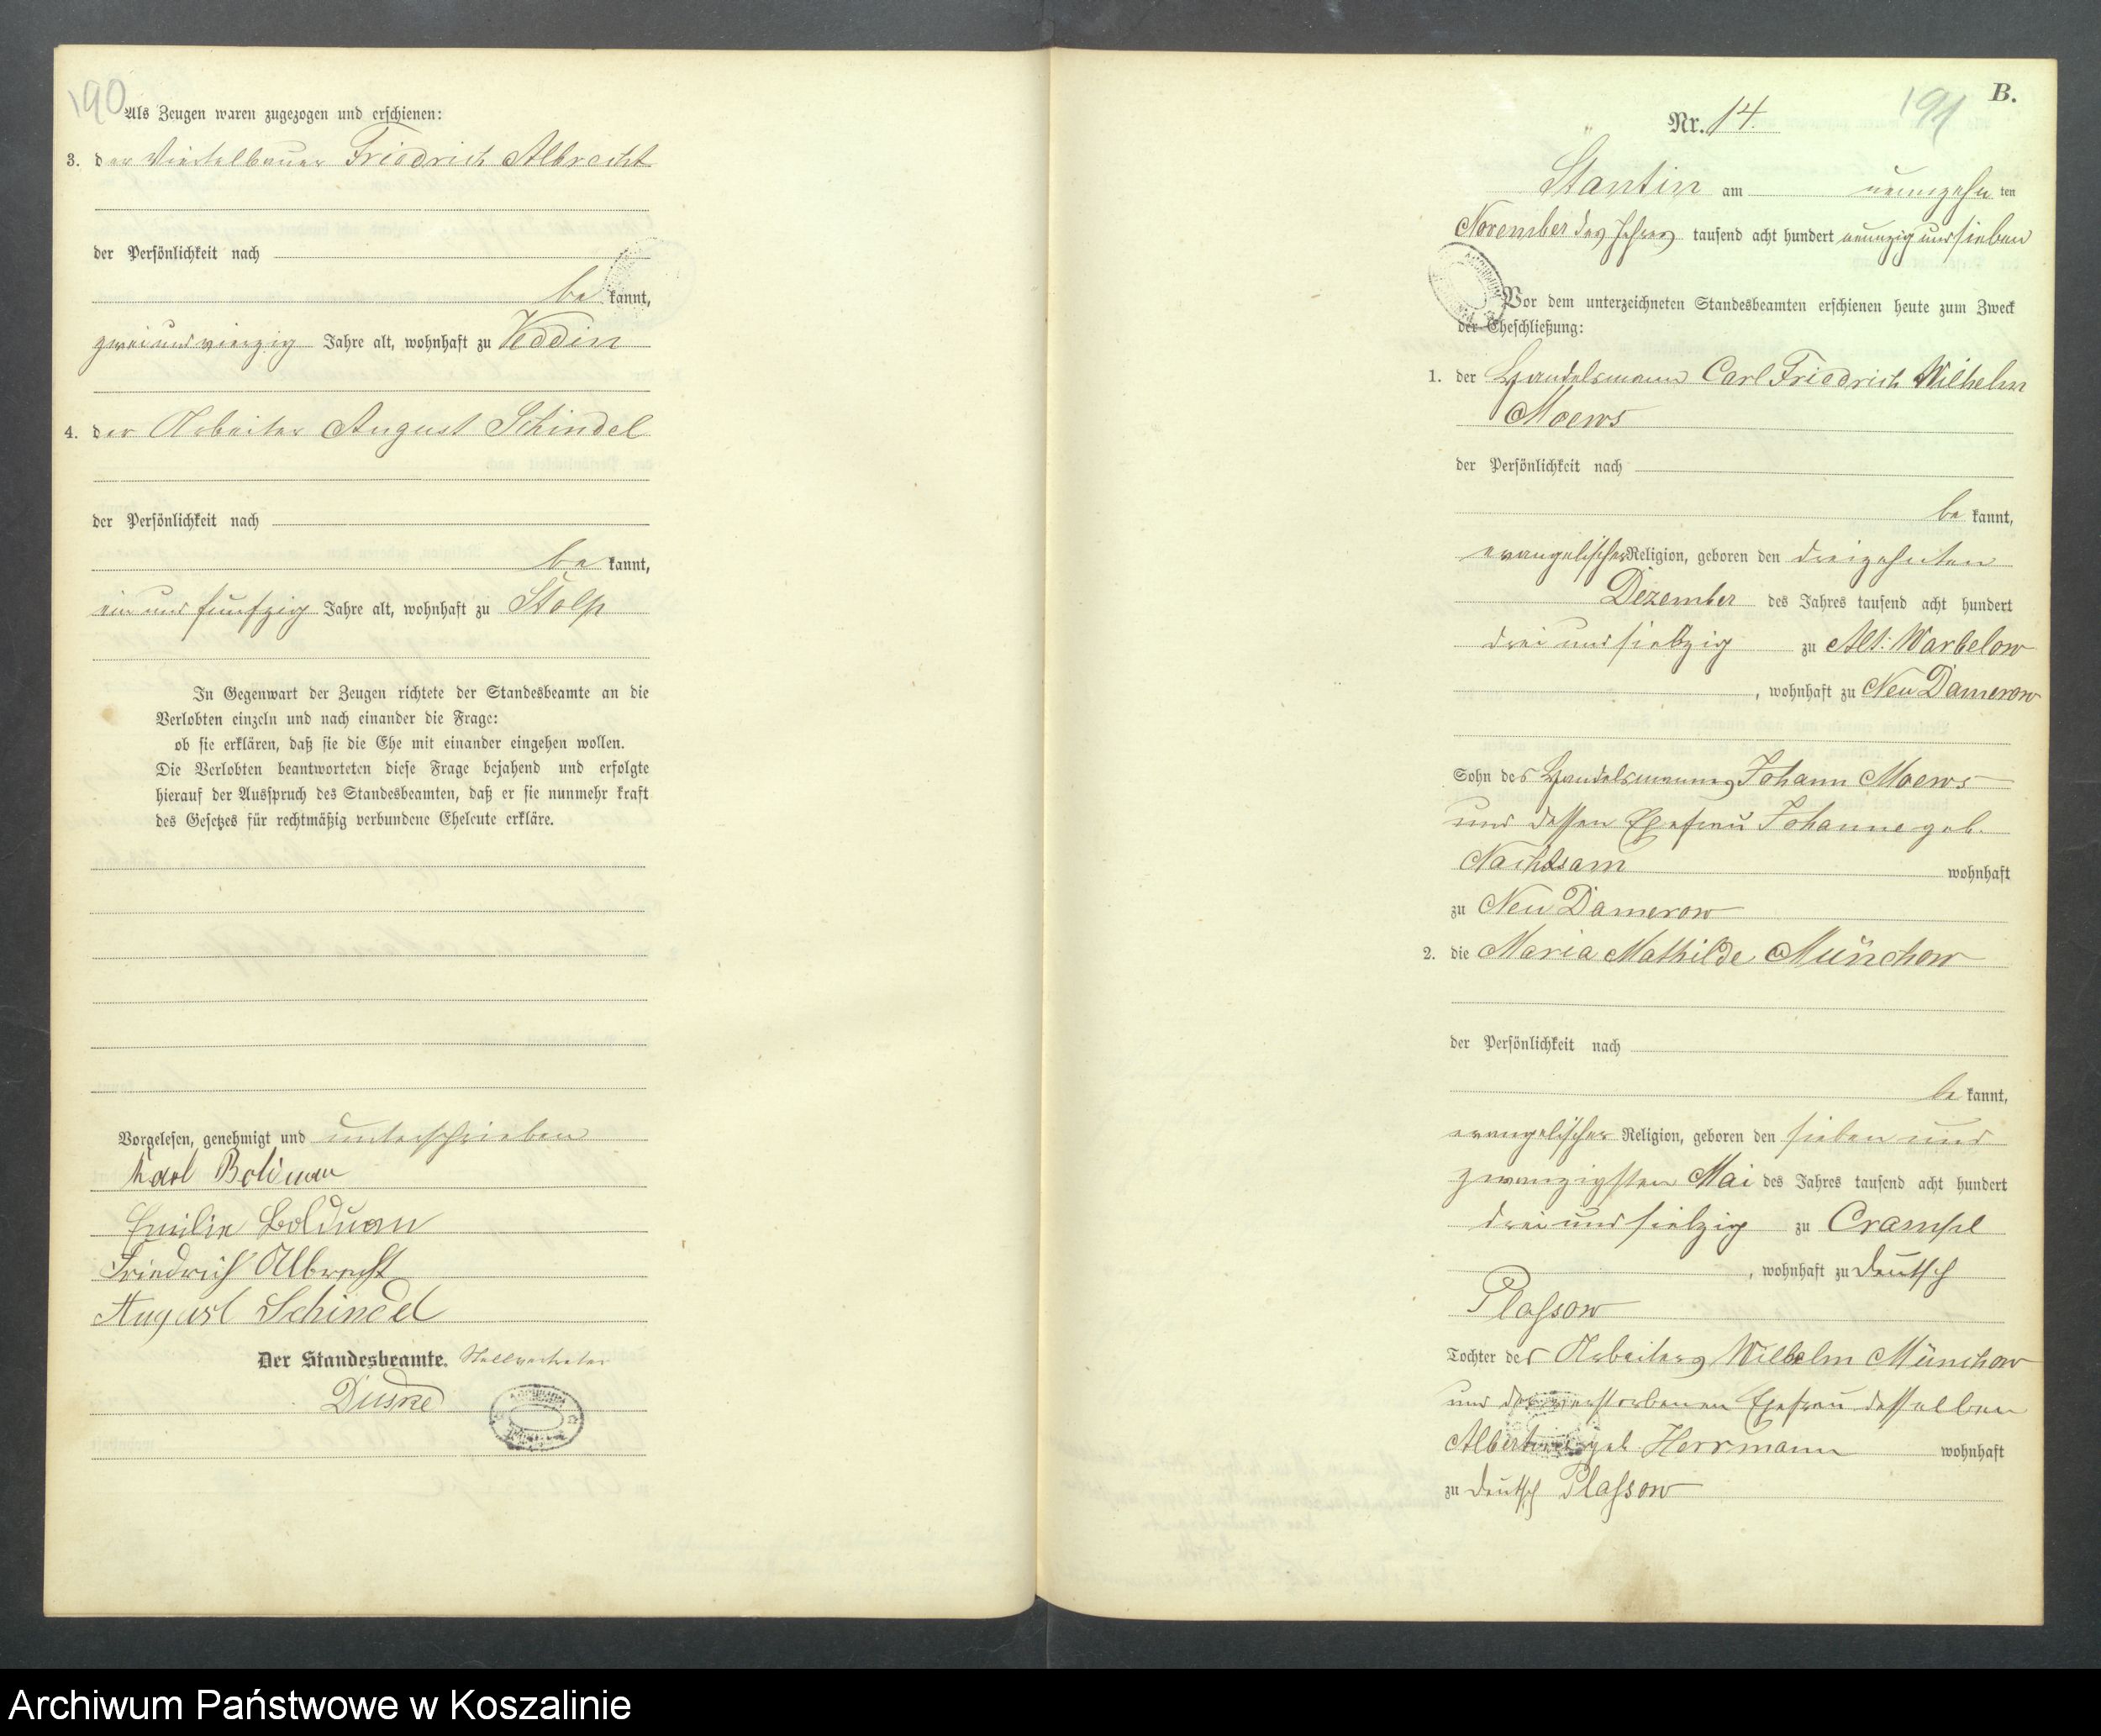 190
Als Zeugen waren zugezogen und erschienen:
3. der Viertelbauer Friedrich Albrecht
der Persönlichkeit nach
be kannt,
zwei und vierzig Jahre alt, wohnhaft zu Veddin
4. der Arbeiter August Schindel
der Persönlichkeit nach
be kannt,
ein und fünfzig Jahre alt, wohnhaft zu Stolp
In Gegenwart der Zeugen richtete der Standesbeamte an die
Verlobten einzeln und nach einander die Frage:
ob sie erklären, daß sie die Ehe mit einander eingehen wollen.
Die Verlobten beantworteten diese Frage bejahend und erfolgte
hierauf der Ausspruch des Standesbeamten, daß er sie nunmehr kraft
des Gesetzes für rechtmäßig verbundene Eheleute erkläre.
Vorgelesen, genehmigt und unterschrieben
Karl Bolduan
Emilie Bolduan
Friedrich Albrecht
August Schindel
Der Standesbeamte. Stellvertreter
B.
191
Nr. 14.
Stantin am neunzehn ten
November des Jahres tausend acht hundert neunzig und sieben
Vor dem unterzeichneten Standesbeamten erschienen heute zum Zweck
der Eheschließung:
1. der Handelsmann Carl Friedrich Wilhelm
Moews
der Persönlichkeit nach
be kannt,
evangelischer Religion, geboren den dreizehnten
Dezember des Jahres tausend acht hundert
drei und siebzig zu Alt-Warbelow
, wohnhaft zu Neu Damerow
Sohn des Handelsmanns Johann Moews
und dessen Ehefrau Johanne geb.
Nachtsam wohnhaft
zu Neu Damerow
2. die Maria Mathilde Münchow
der Persönlichkeit nach
be kannt,
evangelischer Religion, geboren den sieben und
zwanzigsten Mai des Jahres tausend acht hundert
drei und siebzig zu Crampe
, wohnhaft zu Deutsch
Plassow
Tochter des Arbeiters Wilhelm Münchow
und der verstorbenen Ehefrau desselben
Albertine geb Herrmann wohnhaft
zu Deutsch Plassow
Archiwum Państwowe w Koszalinie